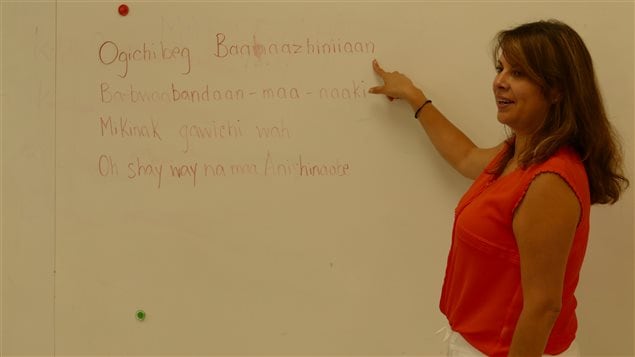 Ogichibeg Baabaazhiniiaan
Ba-bwaabandaan-maa-naaki
Mikinak gawichi wah
Oh shay way na maa Anishinaabe